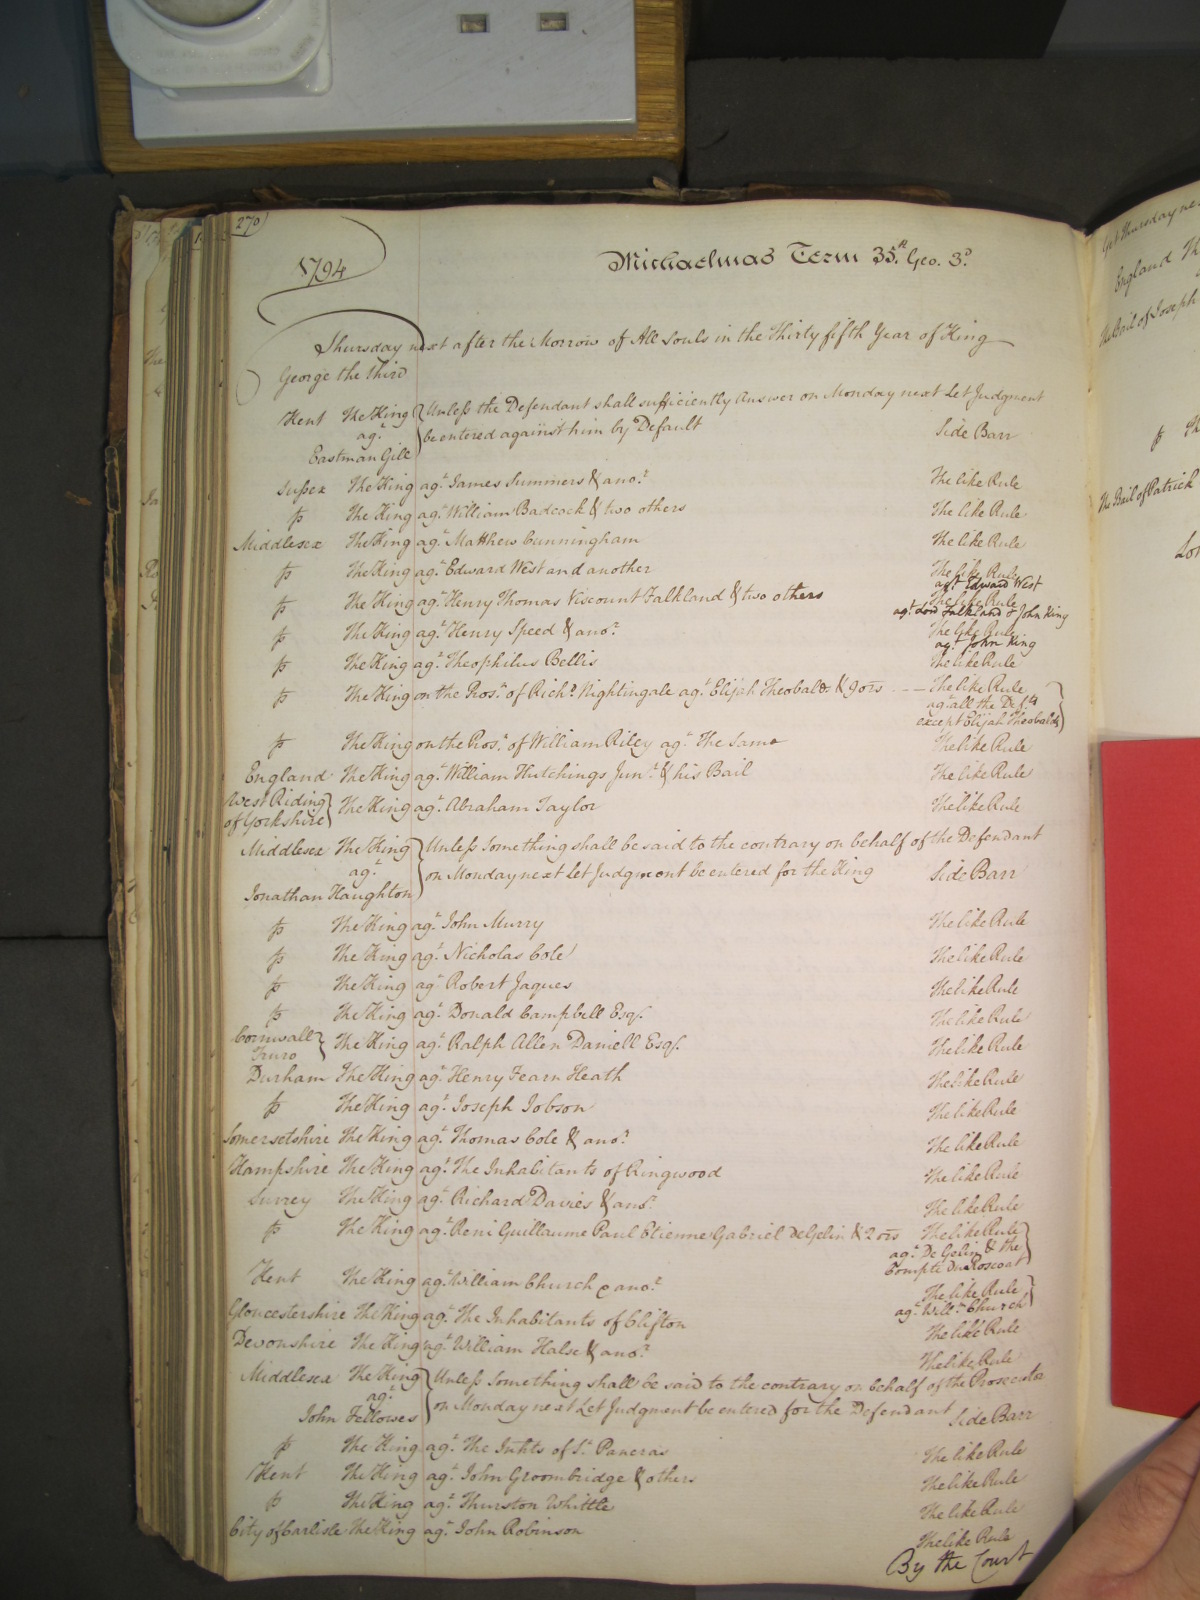 270
1794
Michaelmas Term 35.th Geo. 3.d
Thursday next after the Morrow of All Souls in the Thirty fifth Year of King
George the third
Kent The King Unless the Defendant shall sufficiently Answer on Monday next Let Judgment
ag.t be entered against him by Default Side Barr
Eastman Gill
Sussex The King ag.t James Summers & ano.r The like Rule
p The King ag.t William Badcock & two others The like Rule
Middlesex The King ag.t Matthew Cunningham The like Rule
p The King ag.t Edward West and another The like Rule
ag.t Edward West
p The King ag.t Henry Thomas Viscount Falkland & two others The like Rule
ag.t Lord Falkland & John King
p The King ag.t Henry Speed & ano.r The like Rule
ag.t John King
p The King ag.t Theophilus Bellis The like Rule
p The King on the Pros.n of Rich.d Nightingale ag.t Elijah Theobalds & 9 ors The like Rule
ag.t all the Def.ts
except Elijah Theobalds
p The King on the Pros.n of William Riley ag.t The Same The like Rule
England The King ag.t William Hutchings Jun.r & his Bail The like Rule
West Riding
of Yorkshire The King ag.t Abraham Taylor The like Rule
Middlesex The King Unless Something shall be said to the contrary on behalf of the Defendant
ag.t on Monday next Let Judgment be entered for the King Side Barr
Jonathan Haughton
p The King ag.t John Murry The like Rule
p The King ag.t Nicholas Cole The like Rule
p The King ag.t Robert Jaques The like Rule
p The King ag.t Donald Campbell Esq.r The like Rule
Cornwall
Truro The King ag.t Ralph Allen Daniell Esq.r The like Rule
Durham The King ag.t Henry Fearn Heath The like Rule
p The King ag.t Joseph Jobson The like Rule
Somersetshire The King ag.t Thomas Cole & ano.r The like Rule
Hampshire The King ag.t The Inhabitants of Ringwood The like Rule
Surrey The King ag.t Richard Davies & ano.r The like Rule
p The King ag.t Reni Guillaume Paul Etienne Gabriel DeGelin & 2 ors The like Rule
ag.t De Gelin & the
Compte Du
Kent The King ag.t William Church & ano.r The like Rule
ag.t Will.m Church
Gloucestershire The King ag.t The Inhabitants of Clifton The like Rule
Devonshire The King ag.t William Halse & ano.r The like Rule
Middlesex The King Unless Something shall be said to the contrary on behalf of the Prosecutor
ag.t on Monday next Let Judgment be entered for the Defendant Side Barr
John Fellowes
p The King ag.t The Inhts of S.t Pancras The like Rule
Kent The King ag.t John Groombridge & others The like Rule
p The King ag.t Thurston Whittle The like Rule
City of Carlisle The King ag.t John Robinson The like Rule
By the Court
England Th
The Bail of Joseph
p
The Bail of Patrick